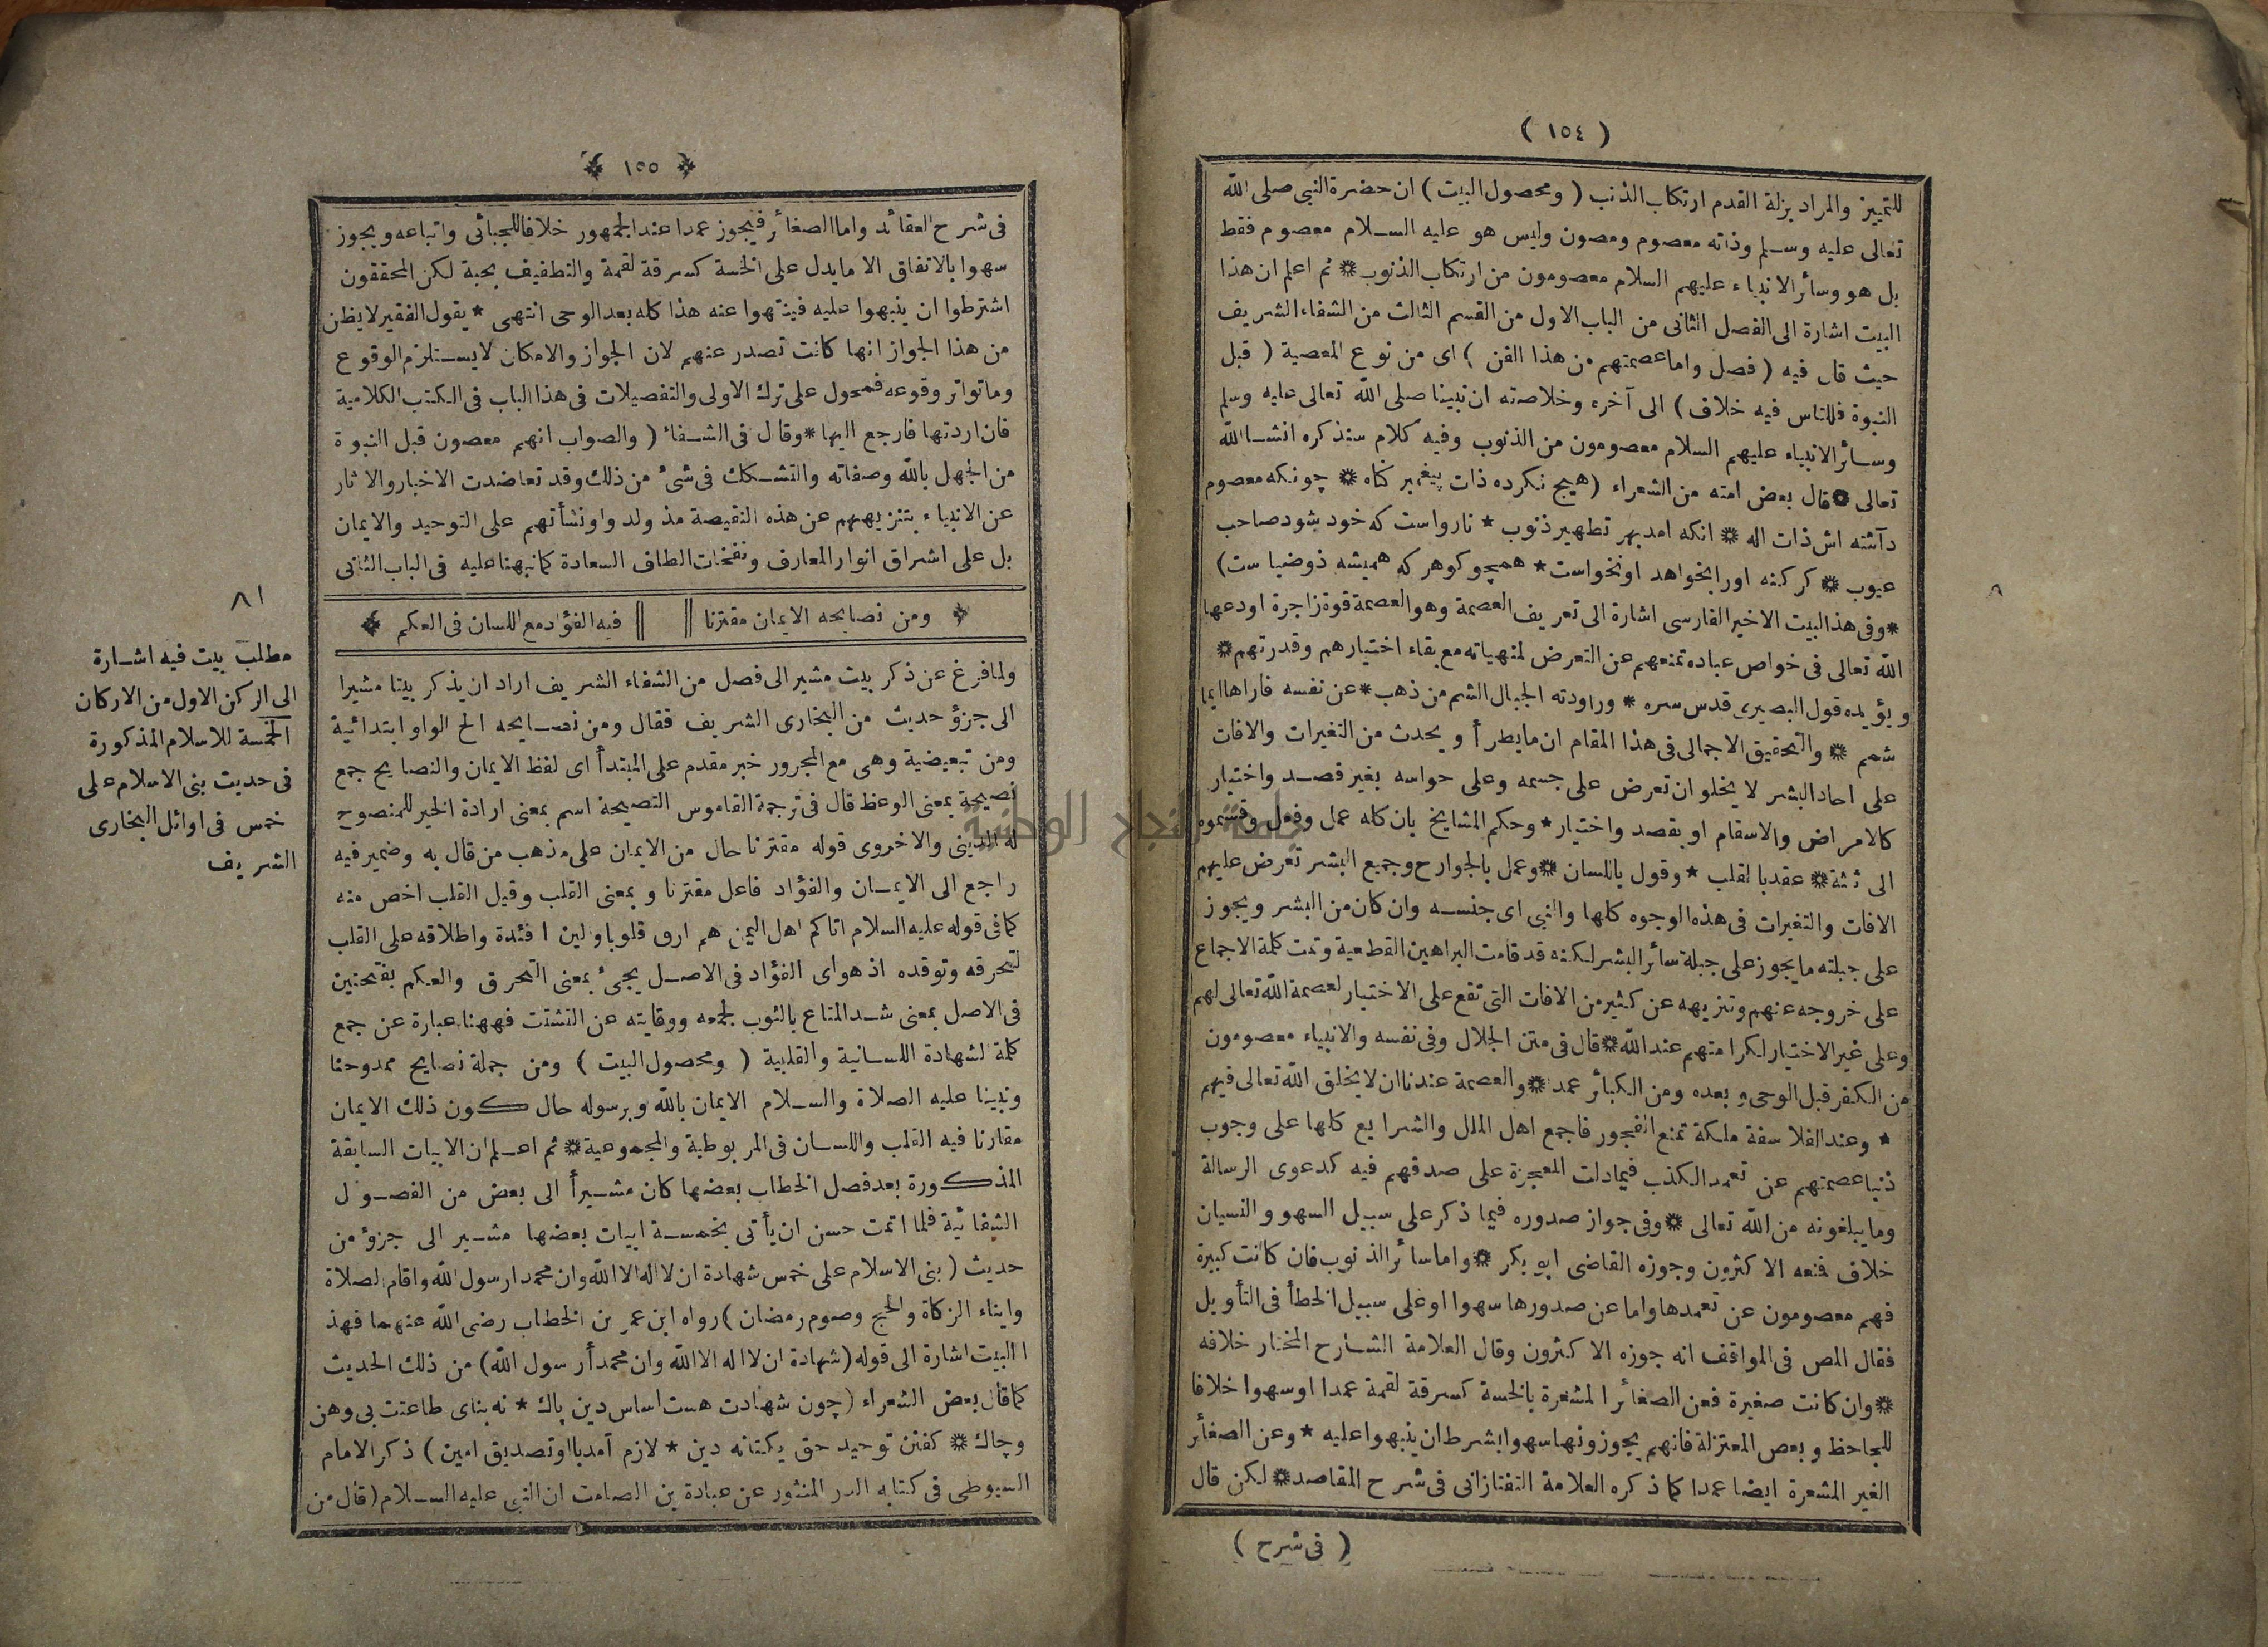 ( ١٥٤ )
للتمييز والمراد بزلة القدم ارتكاب الذنب ( ومحصول البيت ) ان حضرة النبى صلى الله
تعالى عليه وسلم وذاته معصوم ومصون وليس هو عليه السلام معصوم فقط
بل هو وسائر الانبياء عليهم السلام معصومون من ارتكاب الذنوب * ثم اعلم ان هذا
البيت اشارة الى الفصل الثانى من الباب الاول من القسم الثالث من الشفاء الشريف
حيث قال فيه ( فصل واما عصمتهم من هذا الفن ) اى من نوع المعصية ( قبل
النبوة فللناس فيه خلاف ) الى آخره وخلاصته ان نبينا صلى الله تعالى عليه وسلم
وسائر الانبياء عليهم السلام معصومون من الذنوب وفيه كلام ستذكره انشاالله
تعالى * قال بعض امته من الشعراء ( هيج نكرده ذات پيغمبر كناه * چونكه معصوم
دآشته اش ذات اله * انكه امد بهر تطهير ذنوب * نارواست كه خود شود صاحب
عيوب * كر كنه اورا نخواهد اونخواست * همچو كوهر كه هميشه ذوضياست )
* وفى هذ البيت الاخير الفارسى اشارة الى تعريف العصمة وهو العصمة قوة زاجرة اودعها
الله تعالى فى خواص عباده تمنعهم عن التعرض لمنهياته مع بقاء اختيارهم وقدرتهم *
ويؤيده قول البصيرى قدس سره * وراودته الجبال الشم من ذهب * عن نفسه فاراها ايما
شمم * والتحقيق الاجمالى فى هذا المقام ان ما يطرأ ويحدث من التغيرات والافات
على احاد البشر لا يخلو ان تعرض على جسمه وعلى حواسه بغير قصد واختيار
كالامراض والاسقام او بقصد واختيار * وحكم المشايخ بان كله عمل وفعل وقسموه
الى ثلثة * عقد بالقلب * وقول باللسان * وعمل بالجوارح وجميع البشر تعرض عليهم
الافات والتغيرات فى هذه الوجوه كلها والنبى اى جنسه وان كان من البشر ويجوز
على جبلته ما يجوز على جبلة سائر البشر لكنه قد قامت البراهين القطعية وتمت كلمة الاجماع
على خروجه عنهم وتنزيهه عن كثير من الافات التى تقع على الاختيار لعصمة الله تعالى لهم
وعلى غير الاختيار لكرامتهم عند الله * قال فى متن الجلال وفى نفسه والانبياء معصومون
من الكفر قبل الوحى وبعده ومن الكبائر عمد * والعصمة عندنا ان لا يخلق الله تعالى فيهم
* وعند الفلاسفة ملكة تمنع الفجور فاجمع اهل الملل والشرايع كلها على وجوب
ذنبا عصمتهم عن تعمد الكذب فيمادلت المعجزة على صدقهم فيه كدعوى الرسالة
وما يبلغونه من الله تعالى * وفى جواز صدوره فيما ذكر على سبيل السهو والنسيان
خلاف فمنعه الاكثرون وجوزه القاضى ابو بكر * واما سائر الذنوب فان كانت كبيرة
فهم معصومون عن تعمدها واما عن صدورها سهوا او على سبيل الخطأ فى التأويل
فقال المص فى المواقف انه جوزه الاكثرون وقال العلامة الشارح المختار خلافه
* وان كانت صغيرة فعن الصغائر المشعرة بالخسة كسرقة لقمة عمدا اوسهوا خلافا
للجاحظ وبعض المعتزلة فانهم يجوزونها سهوا بشرط ان ينبهوا عليه * وعن الصغائر
الغير المشعرة ايضا عمدا كما ذكره العلامة التفتازانى فى شرح المقاصد * لكن قال
( فى شرح )
١٥٥
فى شرح العقائد واما الصغائر فيجوز عمدا عند الجمهور خلافا للجبائى واتباعه ويجوز
سهوا بالاتفاق الا ما يدل على الخسة كسرقة لقمة والتطفيف بحبة لكن المحققون
اشترطوا ان ينبهوا عليه فينتهوا عنه هذا كله بعد الوحى انتهى * يقول الفقير لا يظن
من هذا الجواز انها كانت تصدر عنهم لان الجواز والامكان لا يستلزم الوقوع
وما تواتر وقوعه فمحمول على ترك الاولى والتفصيلات فى هذا الباب فى الكتب الكلامية
فان اردتها فارجع اليها * وقال فى الشفاء ( والصواب انهم معصون قبل النبوة
من الجهل بالله وصفاته والتشكك فى شئ من ذلك وقد تعاضدت الاخبار والاثار
عن الانبياء بتنزيههم عن هذه النقيصة مذ ولد واونشأتهم على التوحيد والايمان
بل على اشراق انوار المعارف ونفخات الطاف السعادة كما نبهنا عليه فى الباب الثانى
ومن نصايحه الايمان مقترنا || || فيه الفؤاد مع اللسان فى العكم
ولما فرغ عن ذكر بيت مشير الى فصل من الشفاء الشريف اراد ان يذكر بيتا مشيرا
الى جزؤ حديث من البخارى الشريف فقال ومن نصايحه الخ الواو ابتدائية
ومن تبعيضية وهى مع المجرور خبر مقدم على المبتدأ اى لفظ الايمان والنصايح جمع
نصيحة بمعنى الوعظ قال فى ترجمة القاموس النصيحة اسم بمعنى ارادة الخير للمنصوح
له الدينى والاخروى قوله مقترنا حال من الايمان على مذهب من قال به وضمير فيه
راجع الى الايمان والفؤاد فاعل مقترنا و بمعنى القلب وقيل القلب اخص منه
كما فى قوله عليه السلام اتاكم اهل اليمن هم ارق قلوبا ولين ا فئدة واطلاقه على القلب
لتحرقه وتوقده اذ هو اى الفؤاد فى الاصل يجئ بمعنى التحرق والعكم بفتحتين
فى الاصل بمعنى شد المتاع بالثوب لجمعه ووقايته عن التشتت فههنا عبارة عن جمع
كلة لشهادة اللسانية والقلبية ( ومحصول البيت ) ومن جملة نصايح ممدوحنا
ونبينا عليه الصلاة والسلام الايمان بالله وبرسوله حال كون ذلك الايمان
مقارنا فيه القلب واللسان فى المربوطية والمجموعية * ثم اعلم ان الابيات السابقة
المذكورة بعد فصل الخطاب بعضها كان مشيرأ الى بعض من الفصول
الشفائية فلما اتمت حسن ان يأتى بخمسة ابيات بعضها مشير الى جزؤ من
حديث ( بنى الاسلام على خمس شهادة ان لا اله الا الله وان محمدا رسول الله واقام الصلاة
وايتاء الزكاة والحج وصوم رمضان ) رواه ابن عمر بن الخطاب رضى الله عنهما فهذ
ا البيت اشارة الى قوله ( شهادة ان لا اله الا الله وان محمدأ رسول الله ) من ذلك الحديث
كما قال بعض الشعراء ( چون شهادت هست اساس دين پاك * نه بناى طاعتت بى وهن
وچاك * كفتن توحيد حق يكتانه دين * لازم آمد با اوتصديق امين ) ذكر الامام
السيوطى فى كتابه الدر المنثور عن عبادة بن الصامت ان النبى عليه السلام ( قال من
٨١
مطلب بيت فيه اشارة
الى الركن الاول من الاركان
الخمسة للاسلام المذكورة
فى حديت بنى الاسلام على
خمس فى اوائل البخارى
الشريف
جامعة النجاح الوطنية